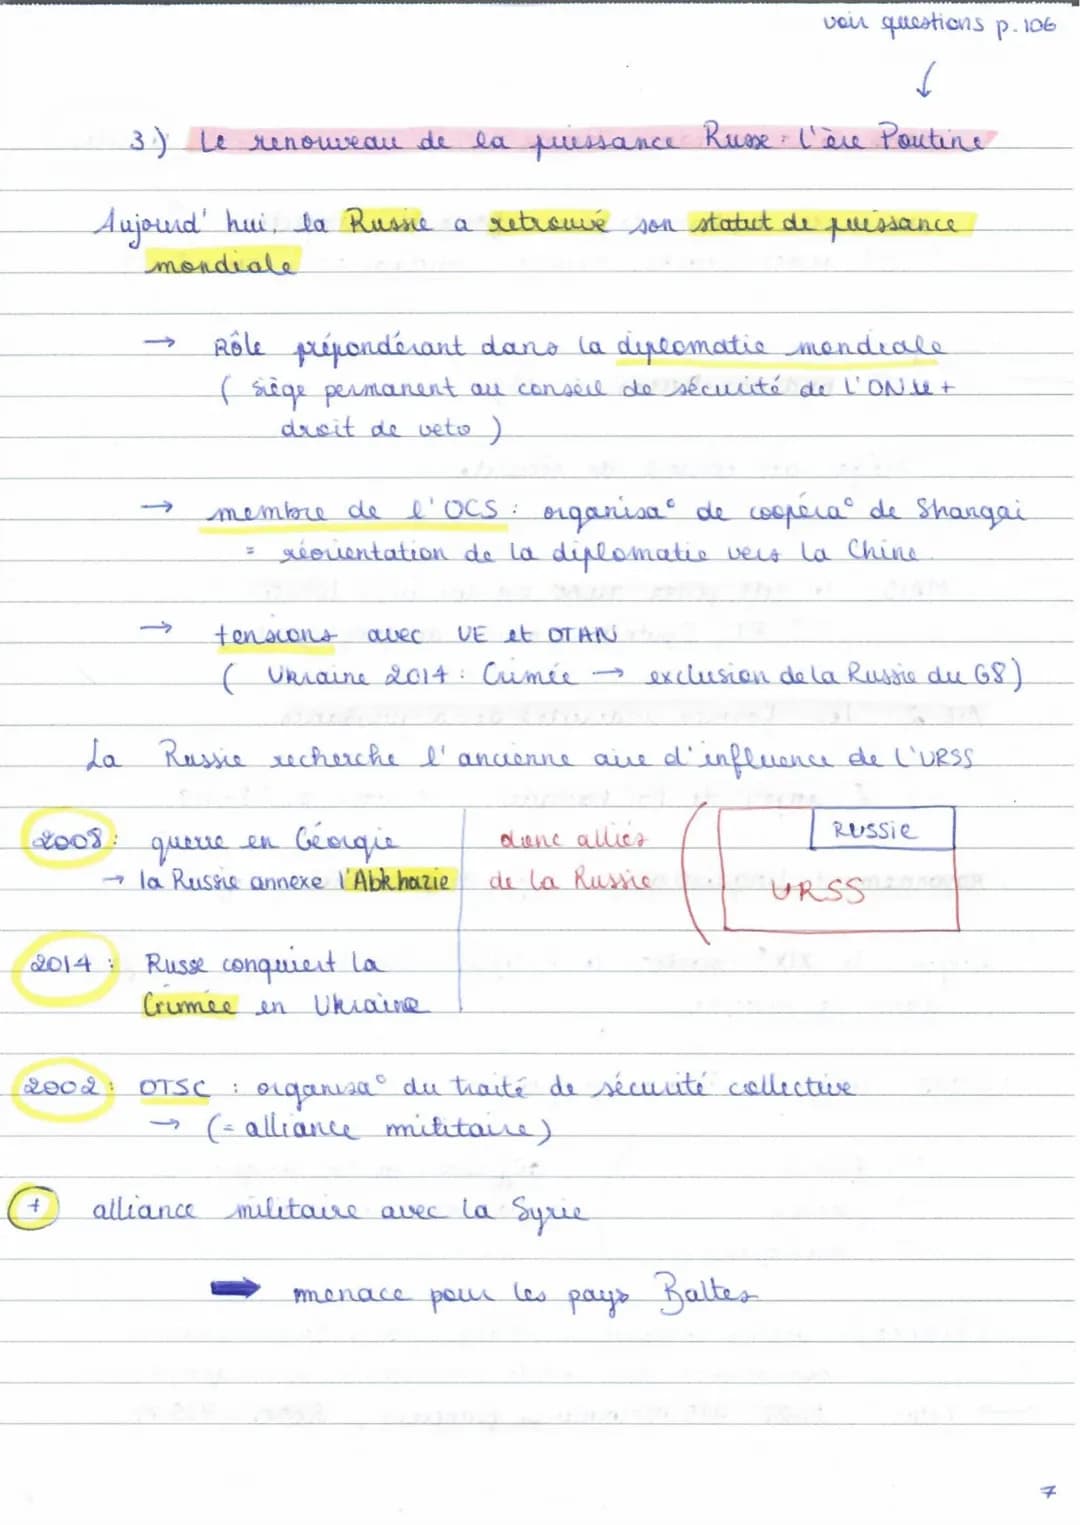 voir questions p.106
↓
3.) Le renouveau de la puissance Russe : l'ère Poutine
Aujourd'hui, la Russie a retrouvé son statut de puissance
mondiale
→ Rôle prépondérant dans la diplomatie mondiale
( siège permanent au conseil de sécurité de l'ONU +
droit de veto )
→ membre de l'OCS : organisa° de coopéra° de Shangai
= réorientation de la diplomatie vers la Chine.
→ tensions avec UE et OTAN
( Ukraine 2014 : Crimée → exclusion de la Russie du G8)
La Russie recherche l'ancienne aire d'influence de l'URSS
2008 : guerre en Géorgie
→ la Russie annexe l'Abkhazie
donc alliés
de la Russie
( RUSSIE
URSS
2014 : Russe conquiert la
Crimée en Ukraine
2002 : OTSC : organisa° du traité de sécurité collective
→ (= alliance militaire)
+ alliance militaire avec la Syrie
➡ menace pour les pays Baltes
7